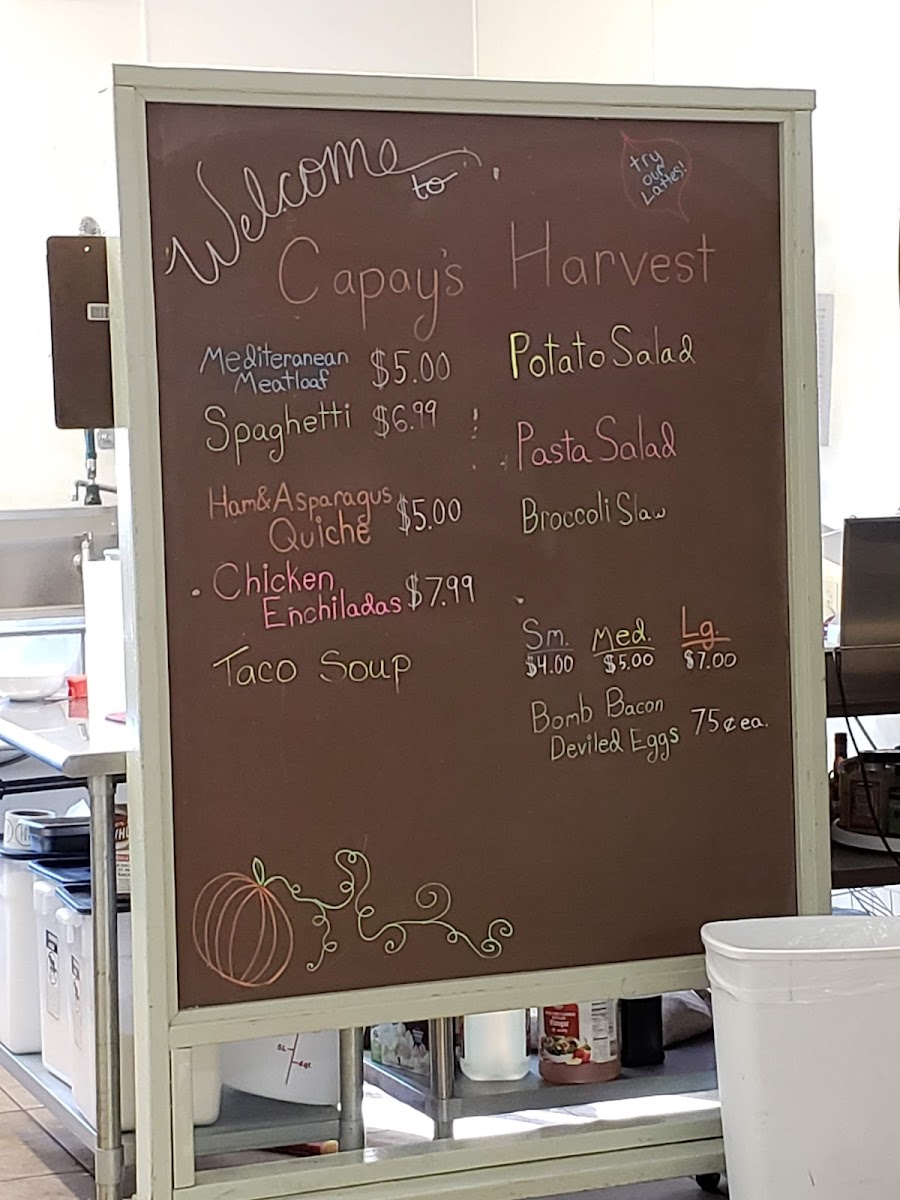 Welcome
to
try
our
Lattes!
Capay's Harvest
Mediteranean
Meatloaf $5.00
Spaghetti $6.99
Ham&Asparagus
Quiche $5.00
Chicken
Enchiladas $7.99
Taco Soup
Potato Salad
Pasta Salad
Broccoli Slaw
Sm. Med. Lg.
$4.00 $5.00 $7.00
Bomb Bacon
Deviled Eggs 75¢ ea.
Vinegar
6L
4qt.